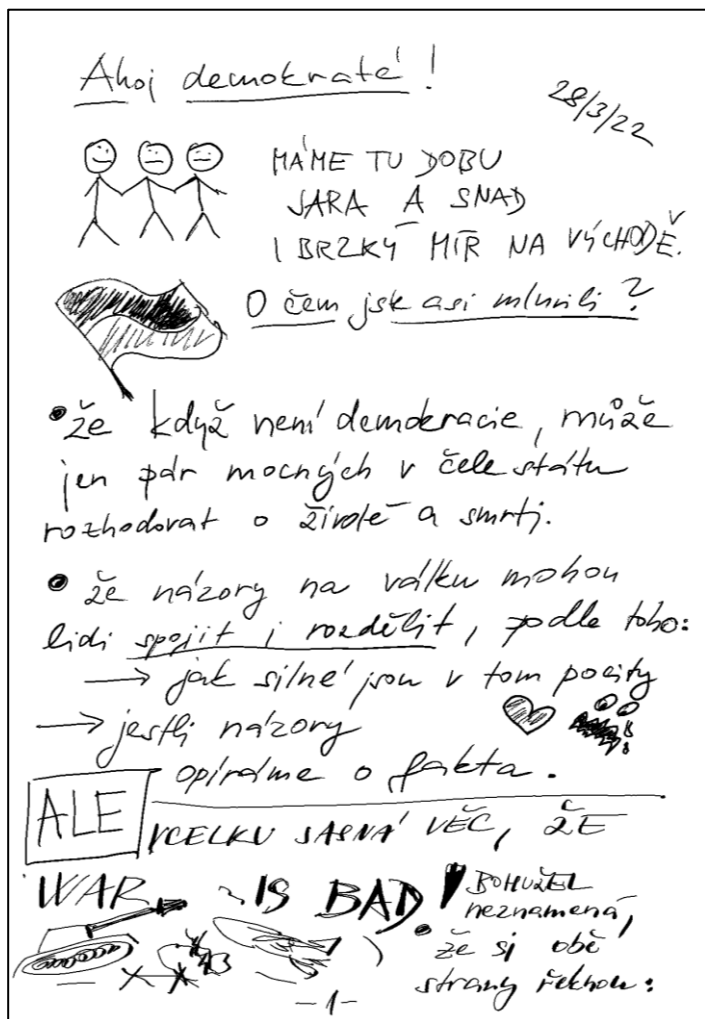 Ahoj demokraté!
28/3/22
MÁME TU DOBU
JARA A SNAD
I BRZKÝ MÍR NA VÝCHODĚ.
O čem jsk asi mluvili?
• že když není demokracie, může
jen pár mocných v čele státu
rozhodovat o životě a smrti.
• že názory na válku mohou
lidi spojit i rozdělit, podle toho:
→ jak silné jsou v tom pocity
→ jestli názory
opíráme o fakta.
ALE
VCELKU JASNÁ VĚC, ŽE
WAR IS BAD!
BOHUŽEL
neznamená,
• že si obě
strany řeknou:
-1-